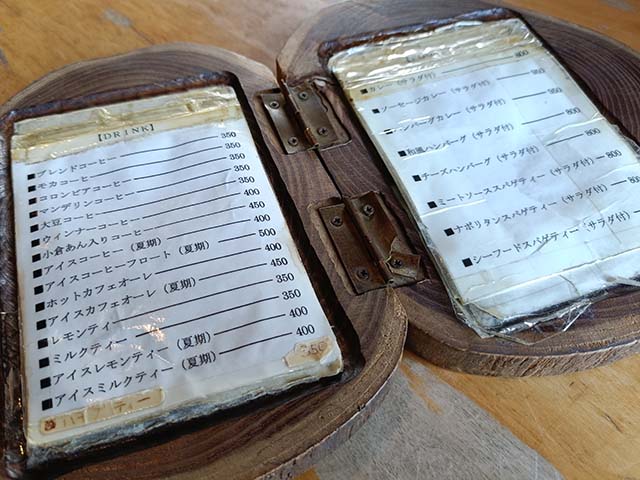 【DRINK】
■ブレンドコーヒー 350
■モカコーヒー 350
■コロンビアコーヒー 350
■マンデリンコーヒー 350
■大豆コーヒー 400
■ウィンナーコーヒー 450
■小倉あん入りコーヒー 400
■アイスコーヒー（夏期） 400
■アイスコーヒーフロート（夏期） 500
■ホットカフェオーレ 400
■アイスカフェオーレ（夏期） 450
■レモンティー 350
■ミルクティー 350
■アイスレモンティー（夏期） 400
■アイスミルクティー（夏期） 400
ハーブティー 350
■カレー（サラダ付） 800
■ソーセージカレー（サラダ付） 850
■ハンバーグカレー（サラダ付） 850
■和風ハンバーグ（サラダ付） 800
■チーズハンバーグ（サラダ付） 850
■ミートソーススパゲティー（サラダ付） 800
■ナポリタンスパゲティー（サラダ付） 800
■シーフードスパゲティー（サラダ付）